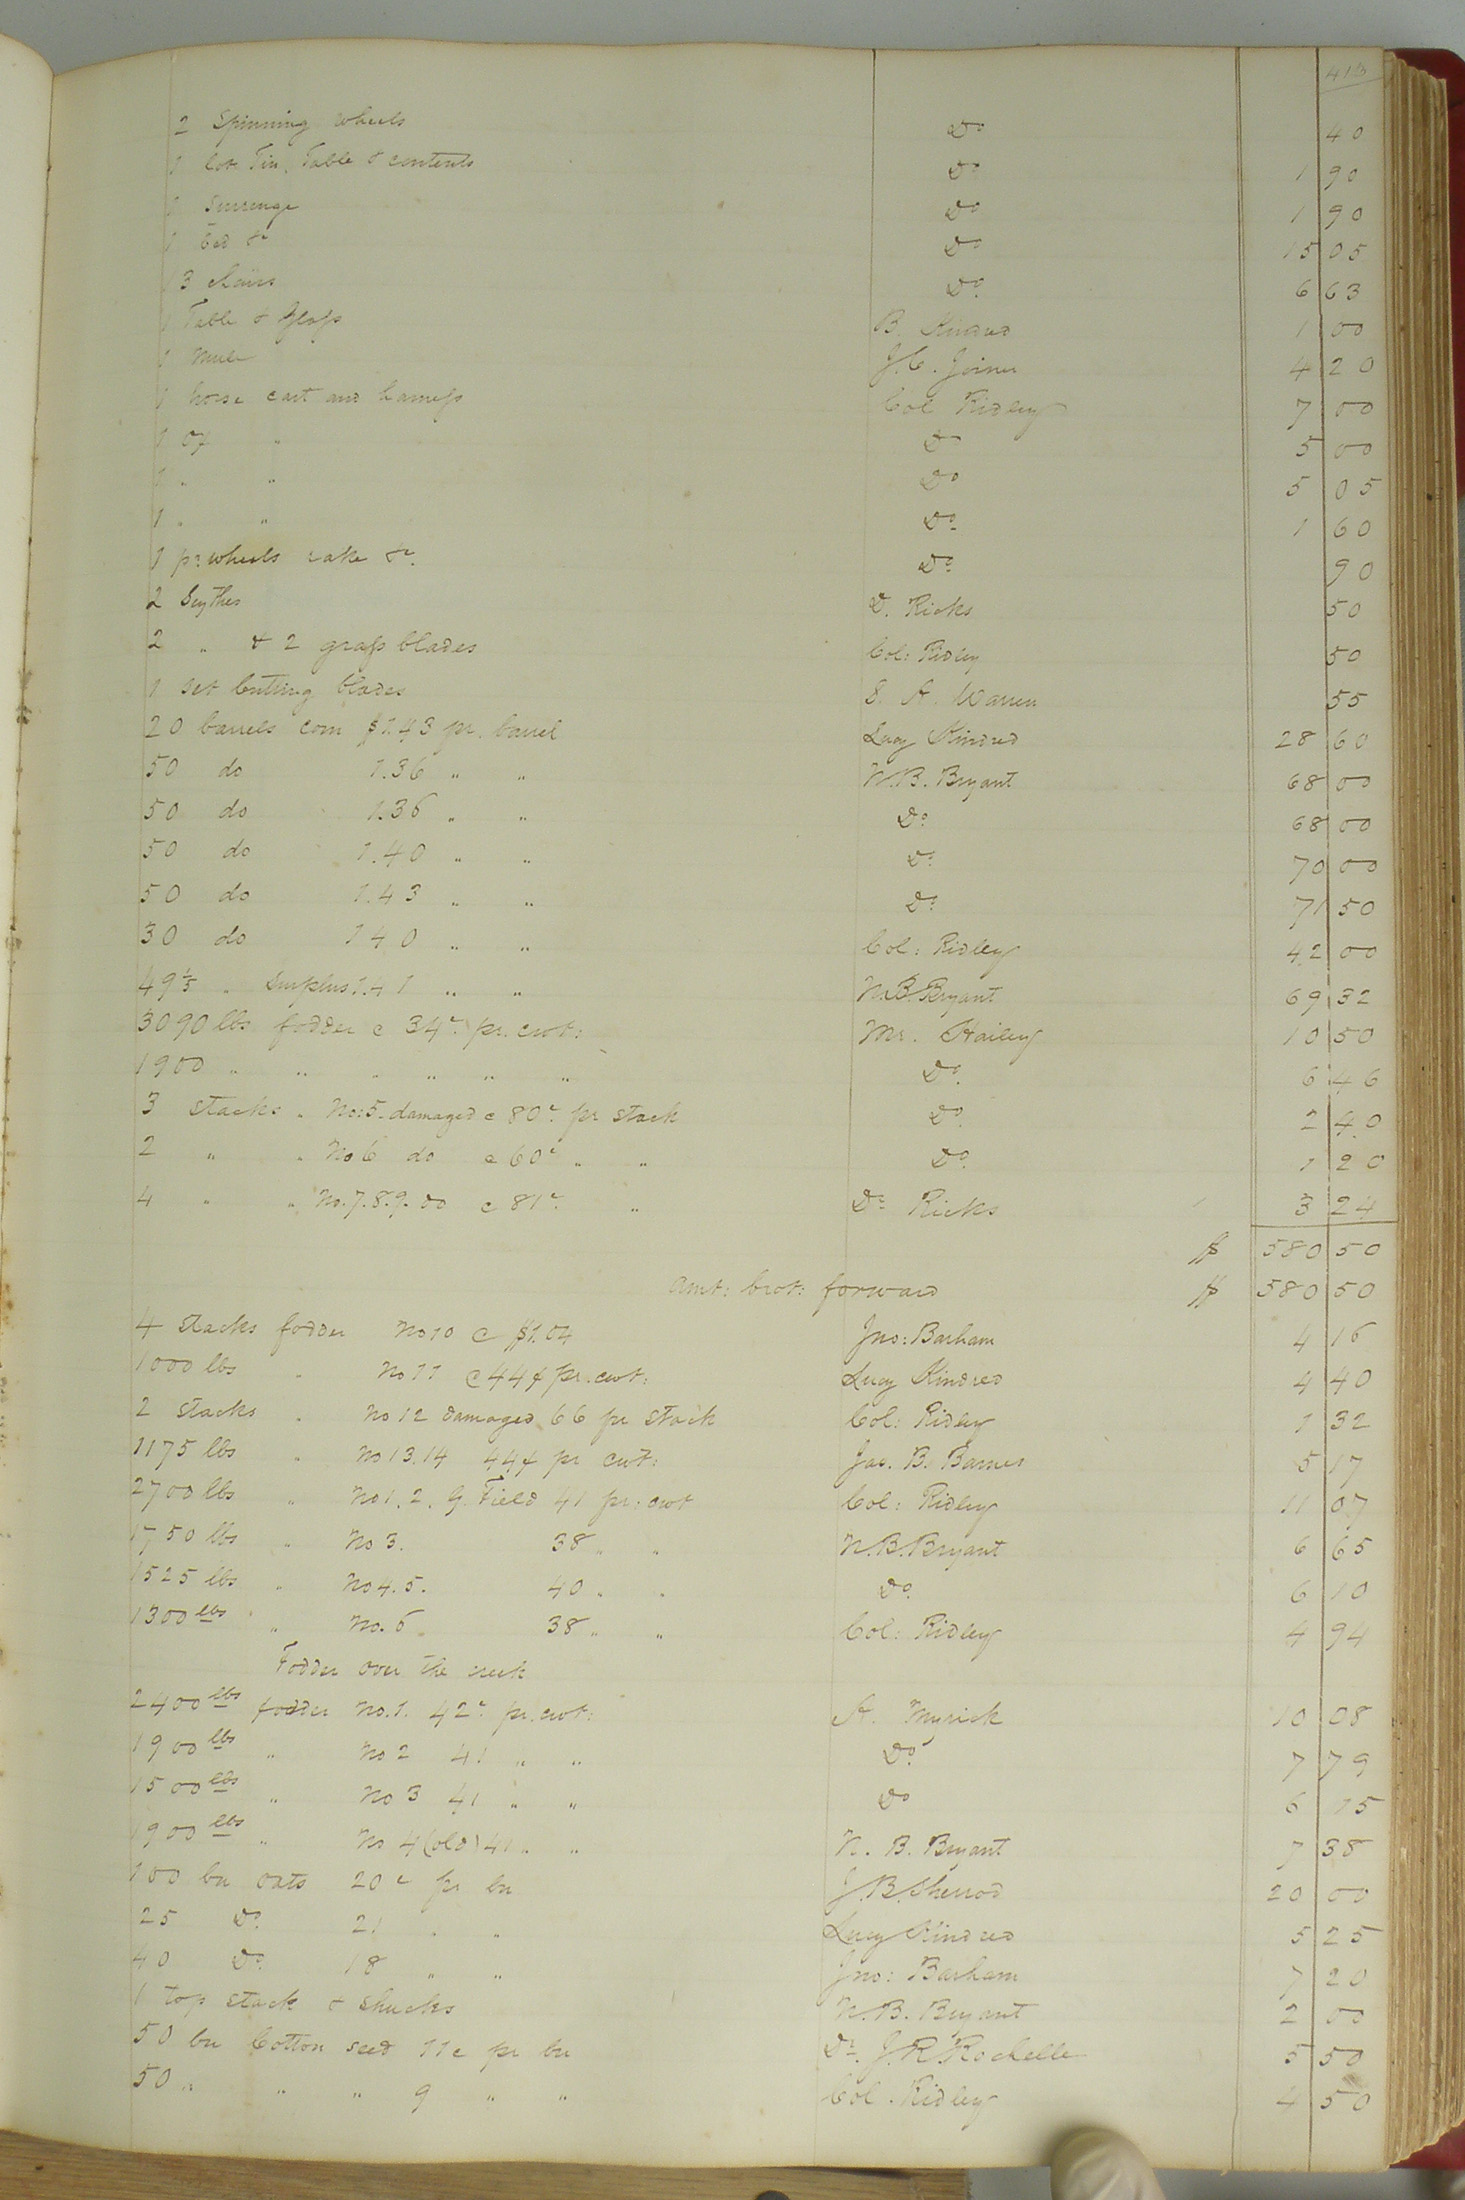 2 Spinning wheels Do 40
1 lot Tin, Table & contents Do 1 90
1 Do 1 90
1 bed &c Do 15 05
13 chairs Do 6 63
1 Table & Glass B. Kindred 1 00
1 Mule J. C. Joiner 4 20
1 horse cart and harness Col Ridley 7 00
1 ox " Do 5 00
1 " " Do 5 05
1 " " Do 1 60
1 pr: wheels rake &c. Do 90
2 Scythes D. Ricks 50
2 " & 2 grass blades Col: Ridley 50
1 set Cutting blades S. A. Warren 55
20 barrels corn $1.43 pr. barrel Lucy Kindred 28 60
50 do 1.36 " " N. B. Bryant 68 00
50 do 1.36 " " Do 68 00
50 do 1.40 " " Do 70 00
50 do 1.43 " " Do 71 50
30 do 140 " " Col: Ridley 42 00
49 1/5 " Surplus 1.41 " " N. B. Bryant 69 32
3090 lbs fodder @ 34c. pr. cwt: Mr. Hailey 10 50
1900 " " " " " " Do. 6 46
3 stacks " No: 5 damaged @ 80c. pr stack Do. 2 40
2 " " No 6 do @ 60c " " Do. 1 20
4 " " No. 7. 8. 9. do @ 81c. " Dr Ricks 3 24
$ 580 50
Amt: brot: forward $ 580 50
4 stacks fodder No 10 @ $1.04 Jno: Barham 4 16
1000 lbs " No 11 @ 44¢ pr. cwt: Lucy Kindred 4 40
2 stacks " No 12 damaged 66 pr stack Col: Ridley 1 32
1175 lbs " No 13. 14 44¢ pr cwt: Jas. B. Barnes 5 17
2700 lbs " No 1. 2. G. Field 41 pr: cwt Col: Ridley 11 07
1750 lbs " No 3. 38 " " N. B. Bryant 6 65
1525 lbs " No 4. 5. 40 " " Do. 6 10
1300 lbs " No. 6 38 " " Col: Ridley 4 94
Fodder over the creek
2400 lbs fodder No. 1. 42c. pr. cwt: A. Myrick 10 08
1900 lbs " No 2 41 " " Do 7 79
1500 lbs " No 3 41 " " Do 6 15
1900 lbs " No 4 (old) 41 " " N. B. Bryant 7 38
100 bu oats 20c pr bu J. B. Sherrod 20 00
25 Do. 21 " " Lucy Kindred 5 25
40 Do. 18 " " Jno: Barham 7 20
1 top stack & shucks N. B. Bryant 2 00
50 bu Cotton seed 11c pr bu Dr. J. R. Rochelle 5 50
50 " " " 9 " " Col. Ridley 4 50